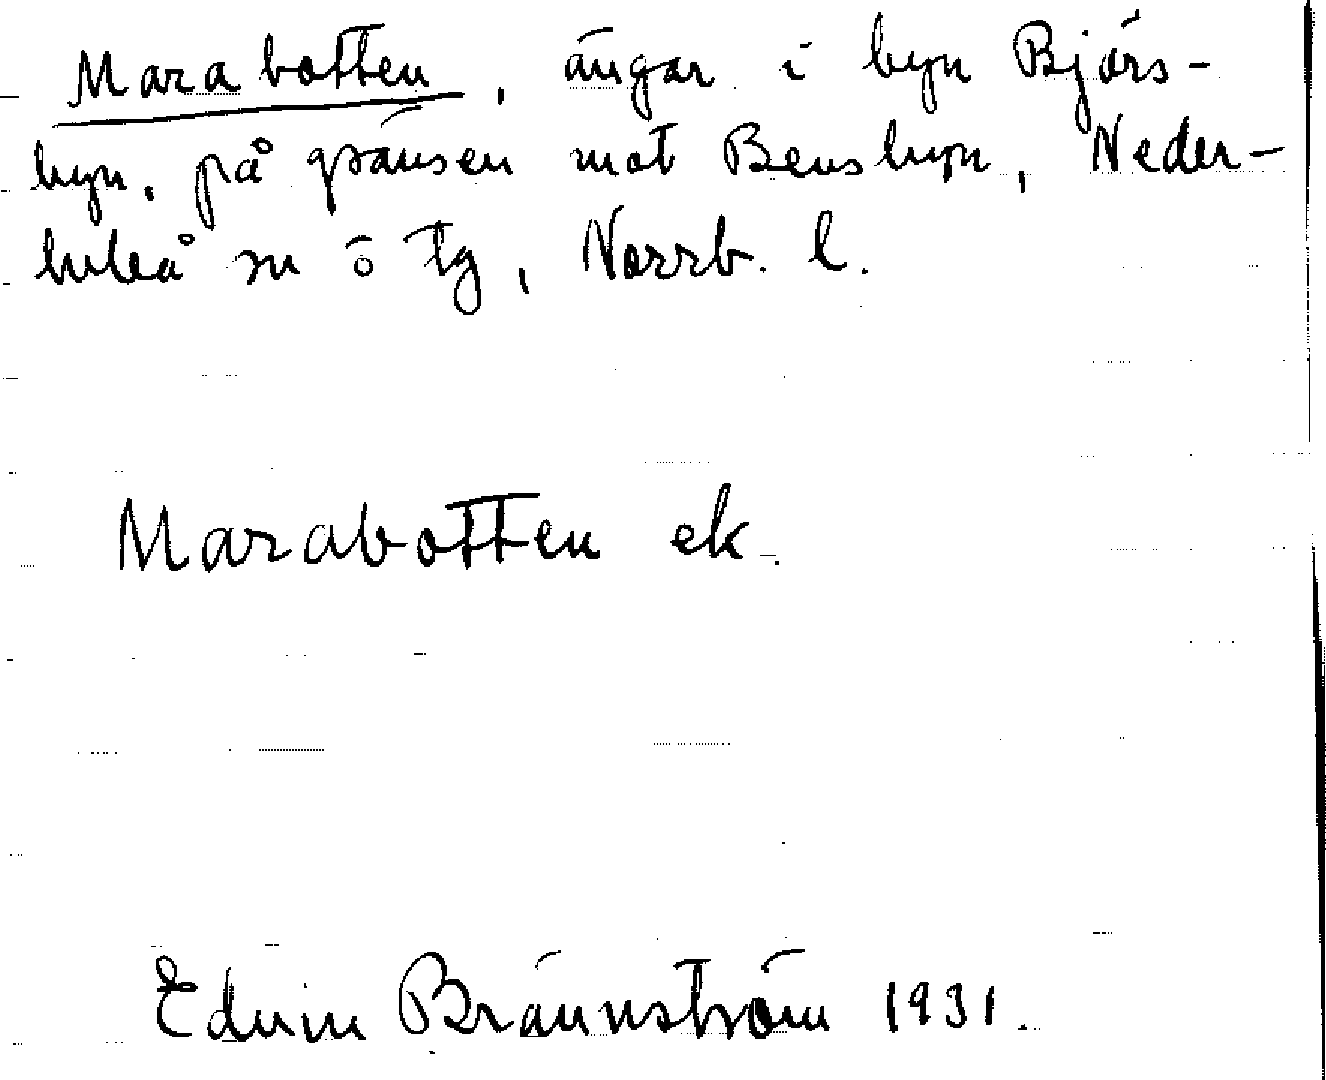 Marabotten, ängar i byn Björs-
byn, på gränsen mot Bensbyn, Neder-
luleå sn o tg, Norrb. l.
Marabotten ek.
Edvin Brännström 1931.